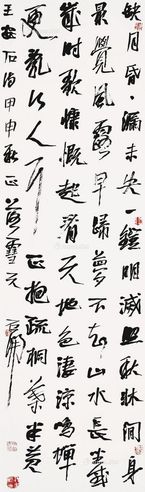 缺月昏昏漏未央一鐙明滅照秋牀病身
最覺風露早歸夢不知山水長坐感
歲時歌慷慨起看天地色淒涼鳴蟬
更亂行人耳正抱疏桐葉半黃
王安石詩甲申